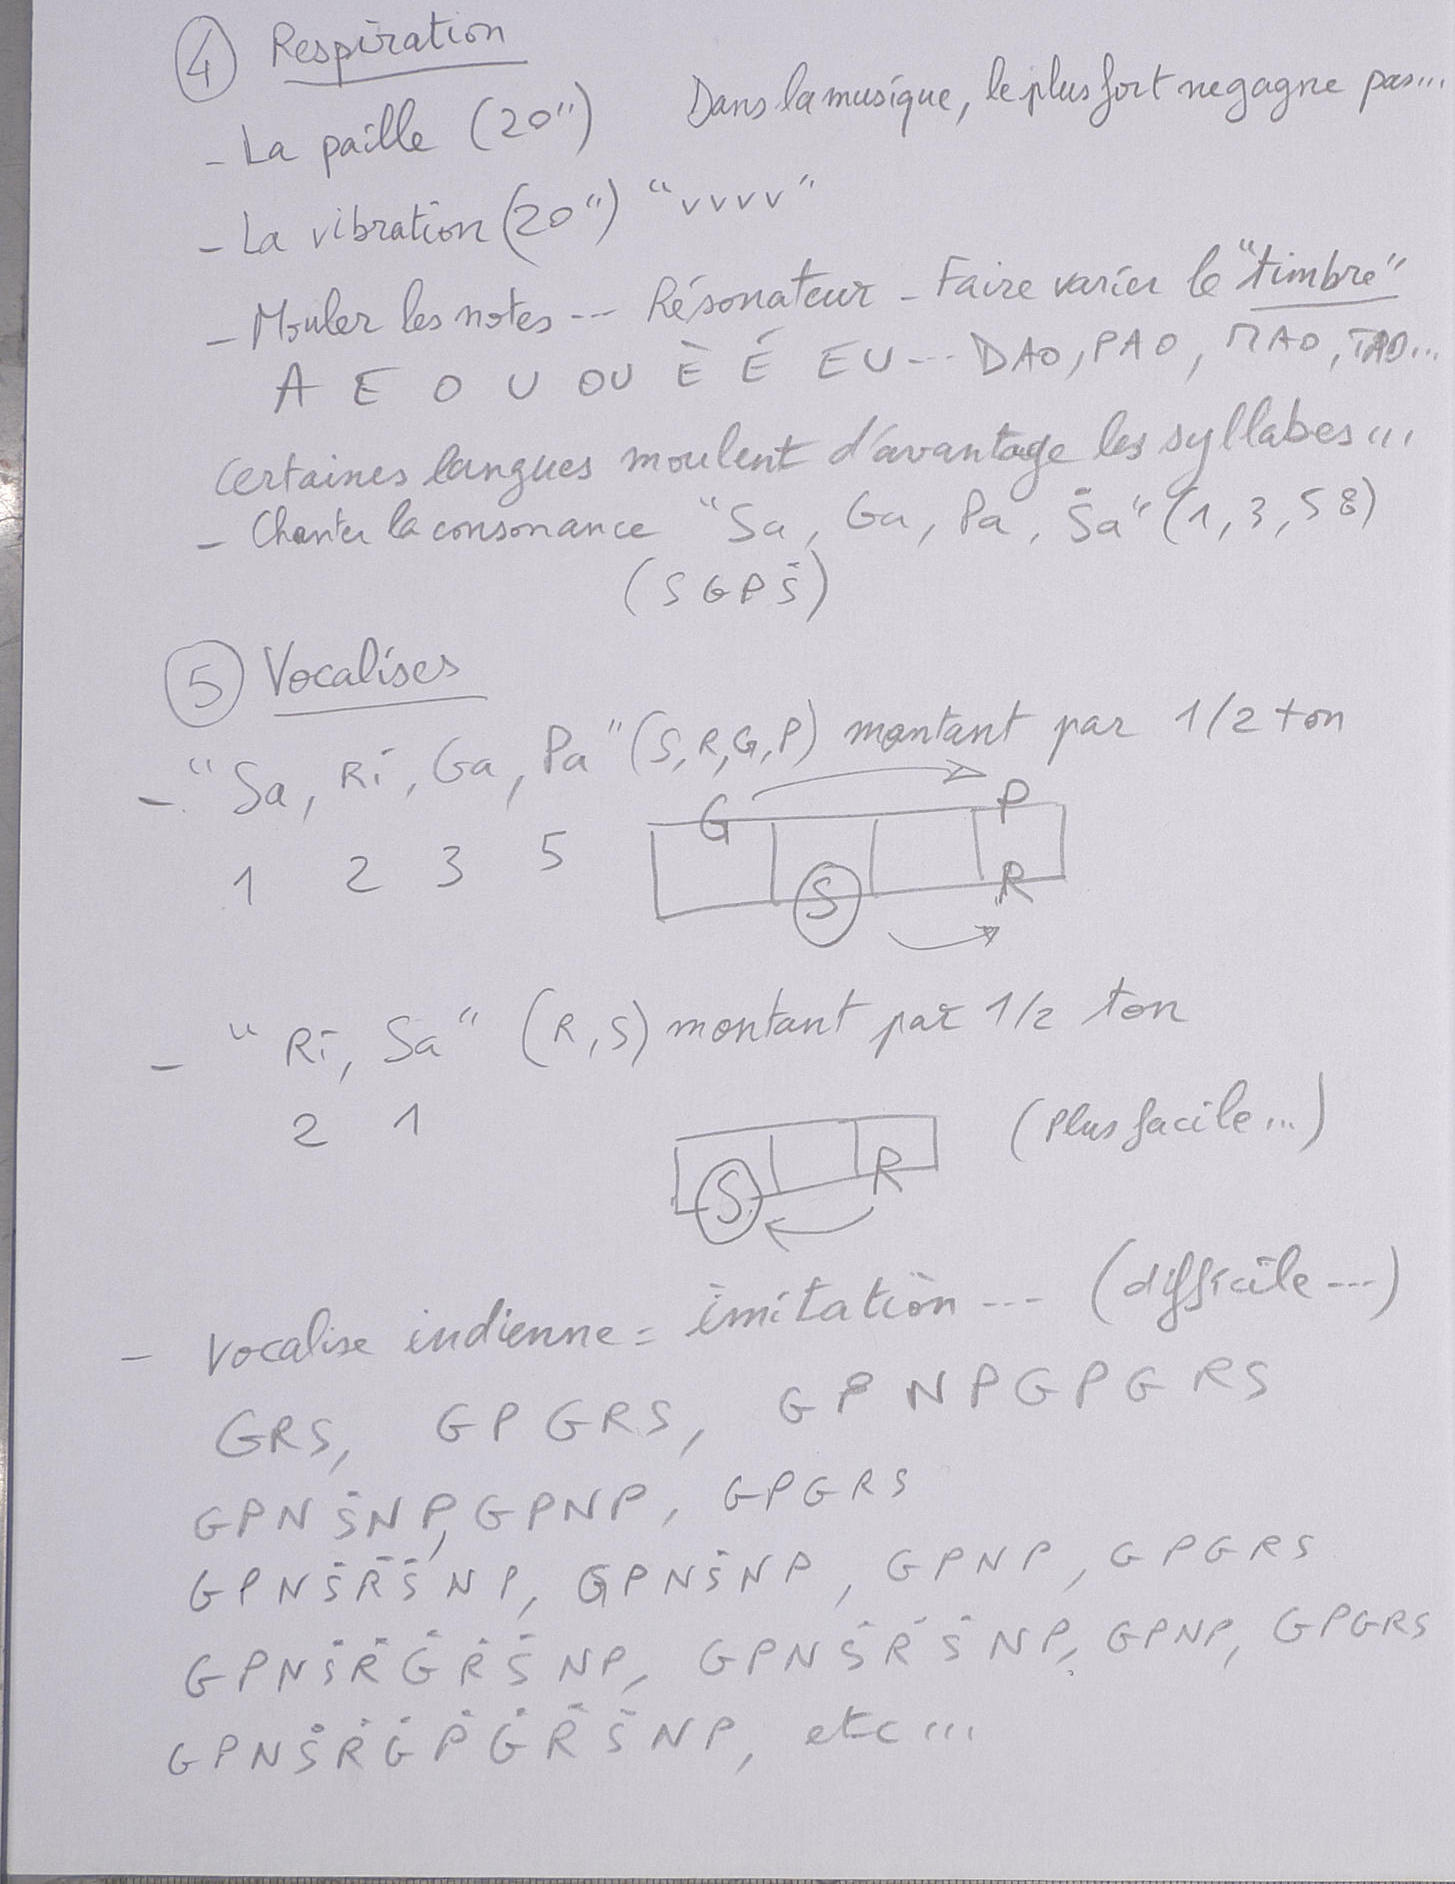 ④ Respiration
- La paille (20") Dans la musique, le plus fort ne gagne pas...
- La vibration (20") "vvvv"
- Mouler les notes... Résonateur - Faire varier le "timbre"
A E O U OU È É EU... DAO, PAO, MAO, TAO...
Certaines langues moulent d'avantage les syllabes...
- Chanter la consonance "Sa, Ga, Pa, Ṡa" (1, 3, 5 8)
(S G P Ṡ)
⑤ Vocalises
- "Sa, Ri, Ga, Pa" (S, R, G, P) montant par 1/2 ton
1 2 3 5
G P
S R
- "Ri, Sa" (R, S) montant par 1/2 ton
2 1
(Plus facile...)
S R
- Vocalise indienne = imitation... (difficile...)
GRS, GPGRS, GPNPGPGRS
GPNṠNP, GPNP, GPGRS
GPNṠṘṠNP, GPNṠNP, GPNP, GPGRS
GPNṠṘĠṘṠNP, GPNṠṘṠNP, GPNP, GPGRS
GPNṠṘĠṖĠṘṠNP, etc...